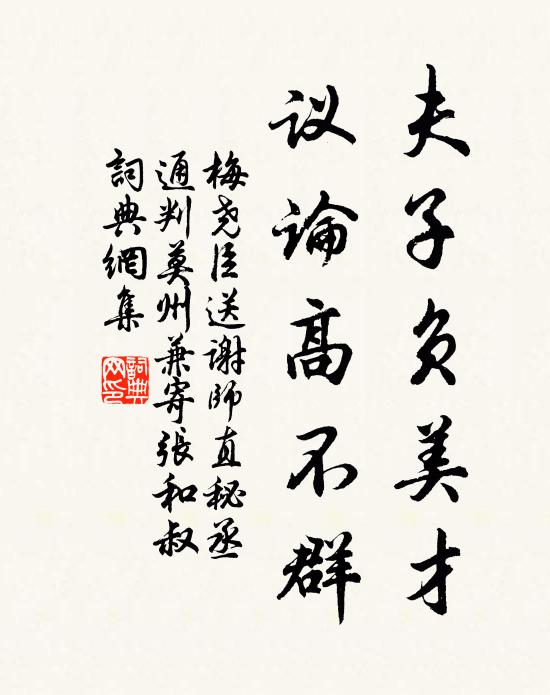 夫子负美才
议論高不群
梅尧臣送謝師直秘丞
通判莫州兼寄張和叔
詞典網集
詞典网印